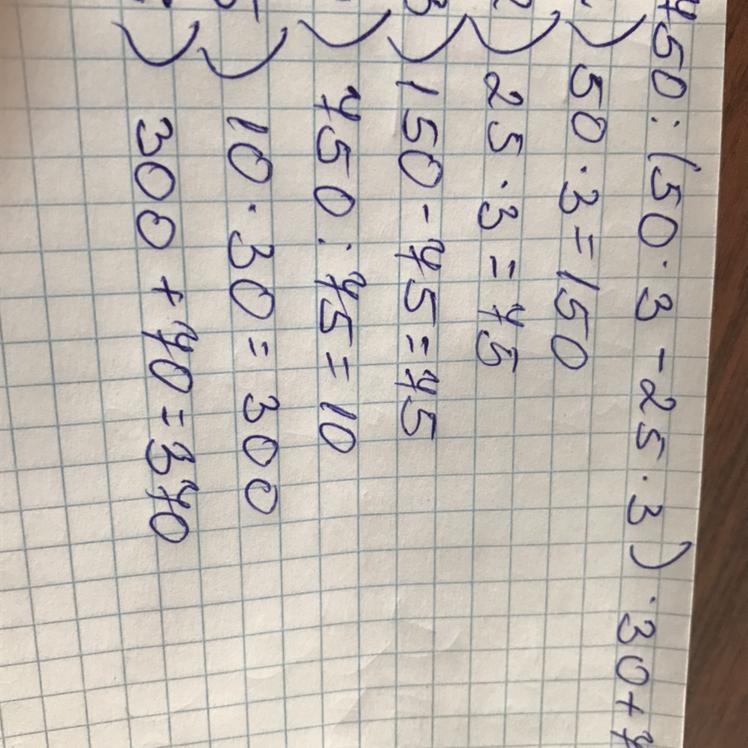 750:(50·3-25·3)·30+7
) 50·3=150
2) 25·3=75
3) 150-75=75
) 750:75=10
5) 10·30=300
) 300+70=370